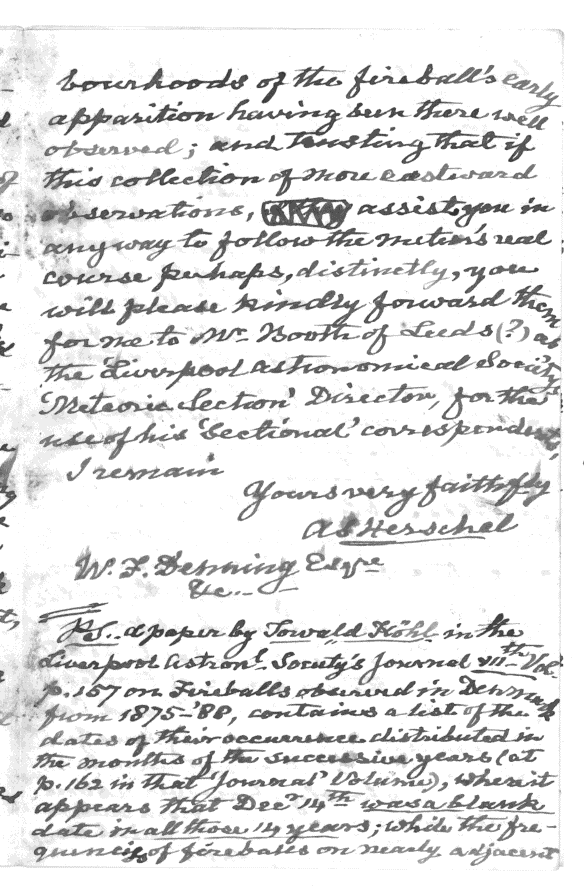 bourhoods of the fireball's early
apparition having been there well
observed; and trusting that if
this collection of more eastward
observations, assist you in
any way to follow the meteor's real
course perhaps, distinctly, you
will please kindly forward them
for me to Mr. Booth of Leeds (?) as
the Liverpool Astronomical Society
'Meteoric Section' Director, for the
use of his 'Sectional' correspondents,
I remain
Yours very faithfully
A S Herschel
W. F. Denning Esqre
&c..
P.S.. A paper by Torvald Köhl in the
Liverpool Astronl. Society's Journal VIIth Vol.
p.157 on Fireballs observed in Denmark
from 1875-'88, contains a list of the
dates of their occurrence distributed in
the months of the successive years (at
p.162 in that 'Journal' Volume), where it
appears that Decr 14th was a blank
date in all those 14 years; while the fre-
quencies of fireballs on nearly adjacent